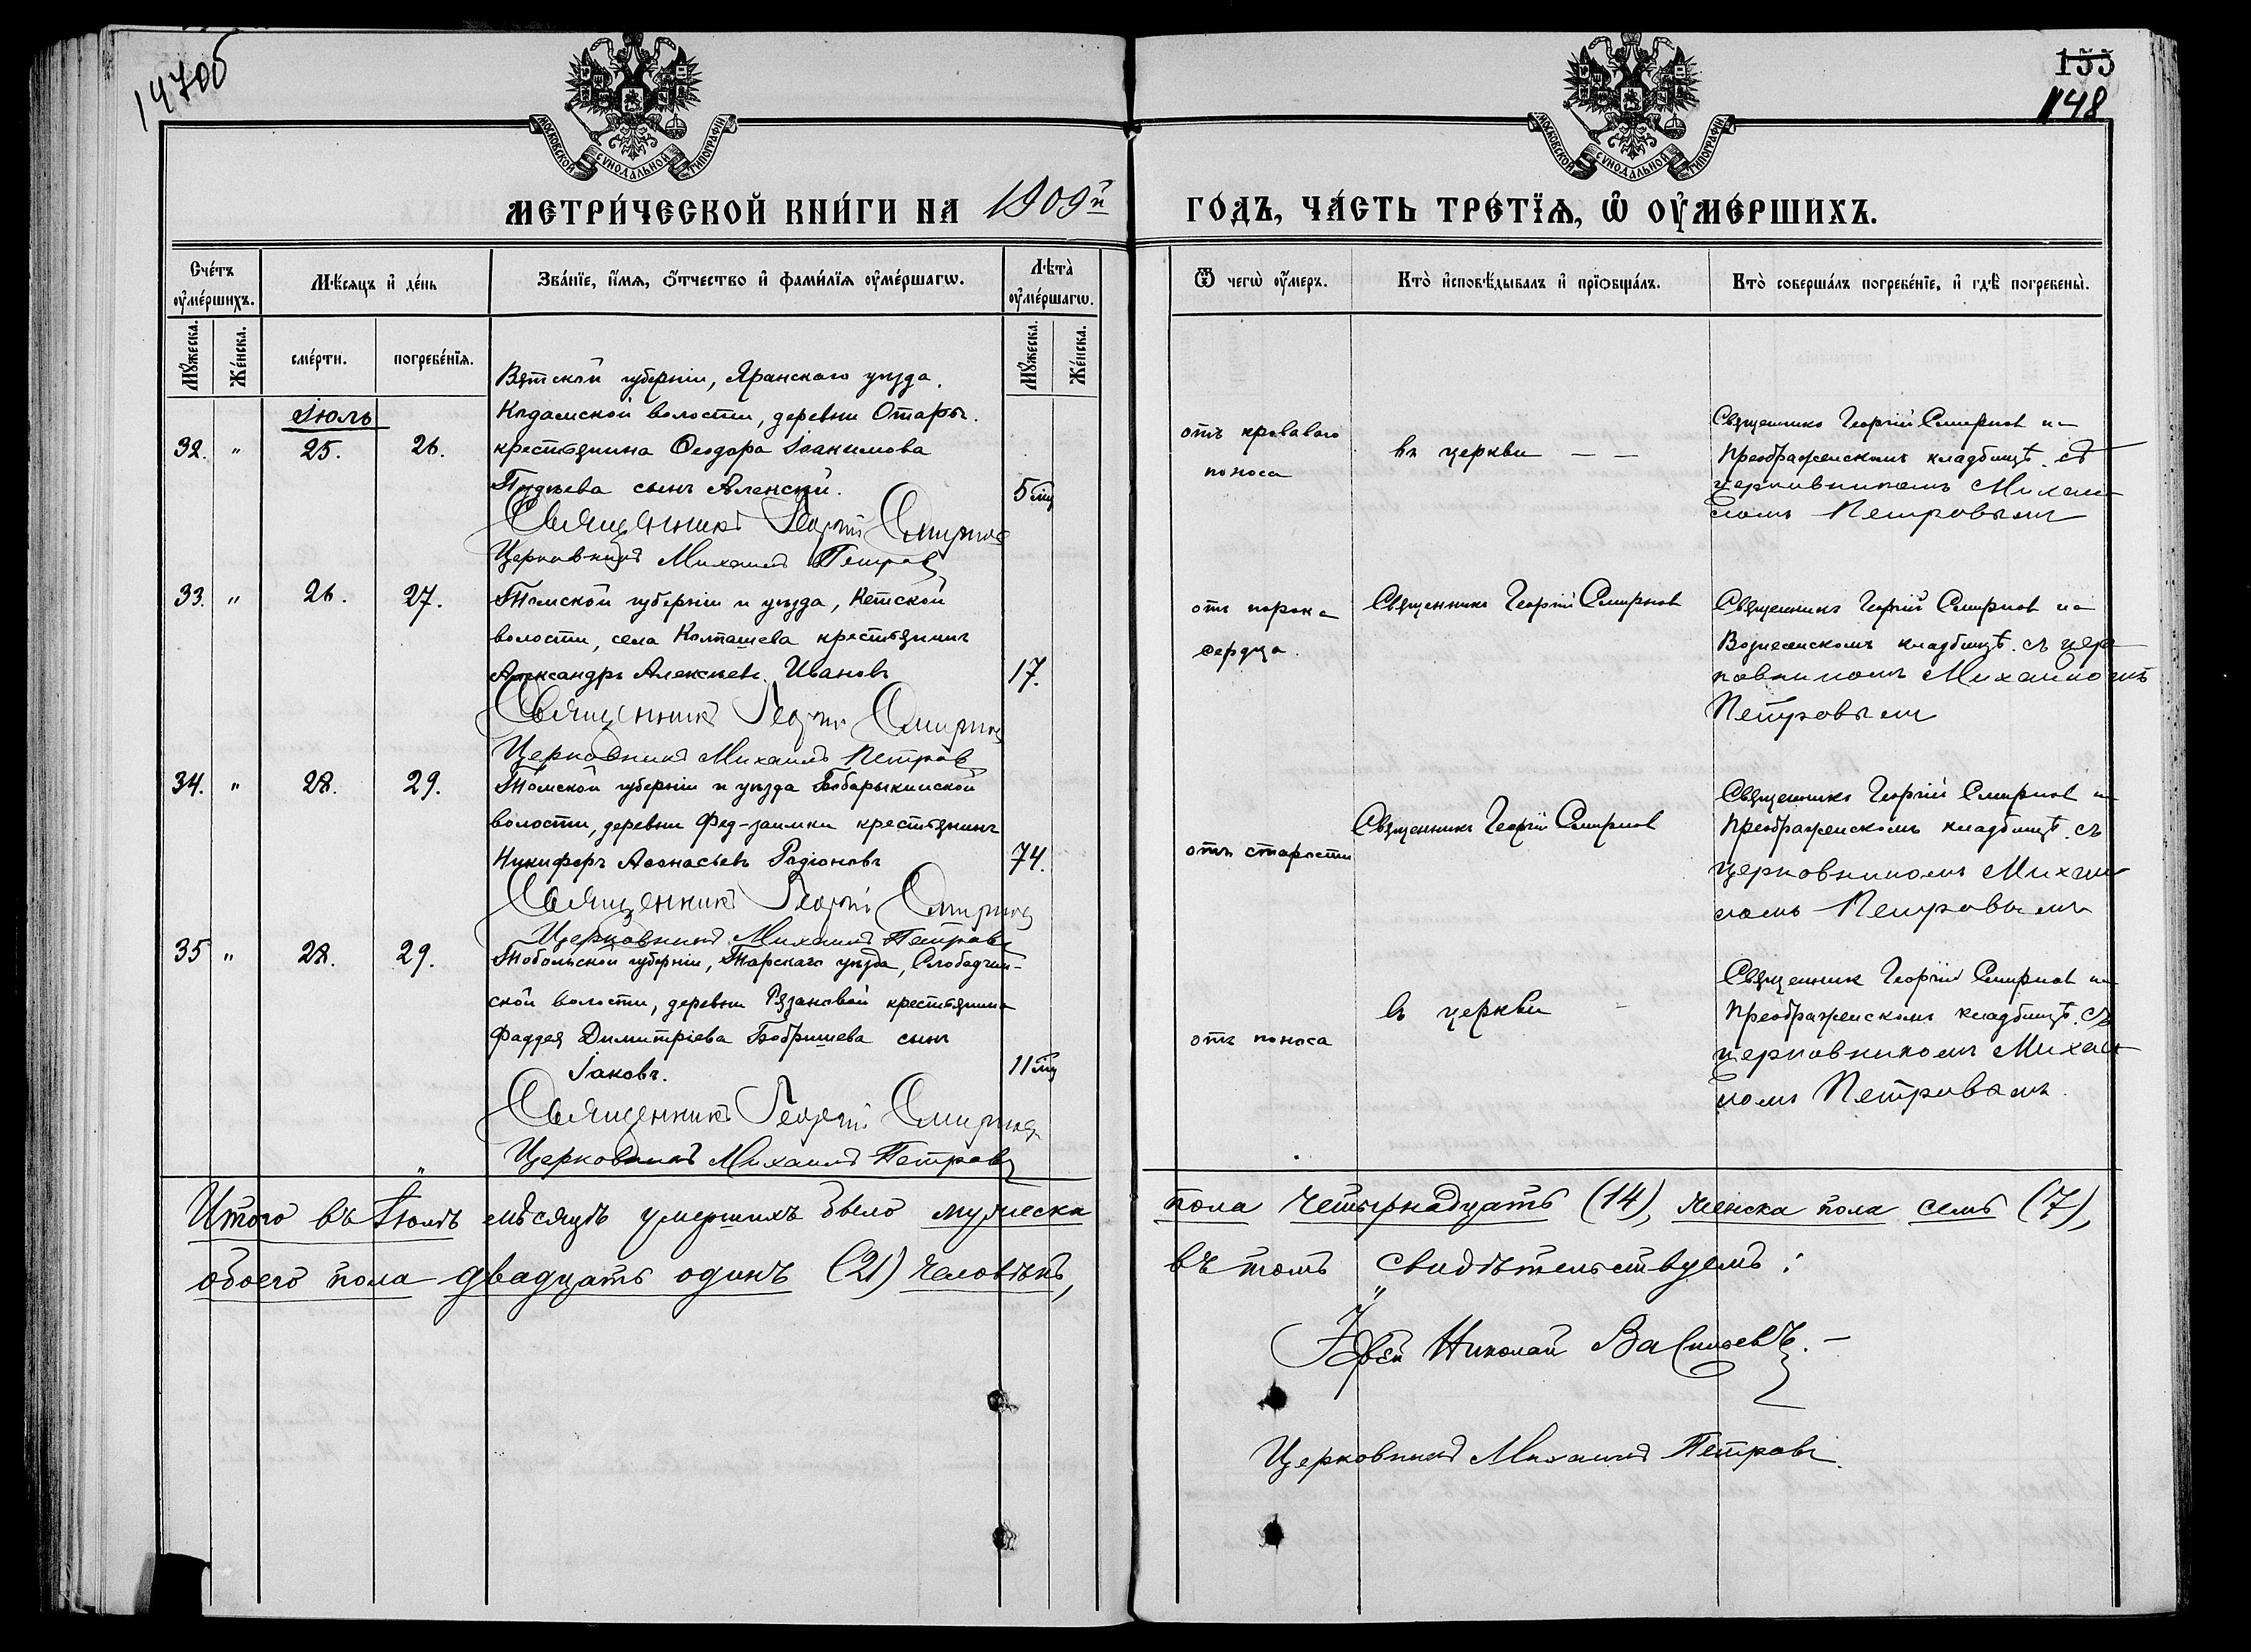 147об
155
148
МОСКОВСКОЙ СѴНОДАЛЬНОЙ ТИПОГРАФІИ
МОСКОВСКОЙ СѴНОДАЛЬНОЙ ТИПОГРАФІИ
МЕТРИ́ЧЕСКОЙ КНИ́ГИ НА 1909й
ГО́ДЪ, ЧА́СТЬ ТРЕ́ТЇѦ, Ѡ҆ ОУ҆МЕ́РШИХЪ.
Сче́тъ оу҆ме́ршихъ.
Мѣ́сяцъ и҆ де́нь
Зва́нїе, и҆́мѧ, о҆́тчество и҆ фами́лїѧ оу҆ме́ршагѡ.
Лѣ́та оу҆ме́ршагѡ.
Ѿ чегѡ̀ оу҆́меръ.
Кто̀ и҆сповѣ́дывалъ и҆ прїѻбща́лъ.
Кто̀ соверша́лъ погребе́нїе, и҆ гдѣ̀ погребены̀.
Мꙋ́жеска.
Же́нска.
сме́рти.
погребе́нїѧ.
Мꙋ́жеска.
Же́нска.
Вятской губерніи, Яранскаго уѣзда,
Іюль
Кадамской волости, деревни Отары.
32. " 25. 26. крестьянина Ѳеодора Іоакимова
сынъ Алексѣй. 5 мц
Священникъ Георгій Смирновъ
Церковникъ Михаилъ Петровъ
отъ кроваваго
поноса
въ церкви — —
Священникъ Георгій Смирновъ на
Преображенскомъ кладбищѣ. съ
церковникомъ Михаи-
ломъ Петровымъ
33. " 26. 27. Томской губерніи и уѣзда, Кетской
волости, села Колпашева крестьянинъ
Александръ Алексѣевъ Ивановъ 17.
Священникъ Георгій Смирновъ
Церковникъ Михаилъ Петровъ
отъ порока
сердца.
Священникъ Георгій Смирновъ
Священникъ Георгій Смирновъ на
Вознесенскомъ кладбищѣ. съ цер-
ковникомъ Михаиломъ
Петровымъ
34. " 28. 29. Томской губерніи и уѣзда Бобарыкинской
волости, деревни Фед-заимки крестьянинъ
Никифоръ Аѳонасьевъ Родіоновъ 74.
Священникъ Георгій Смирновъ
Церковникъ Михаилъ Петровъ
отъ старости
Священникъ Георгій Смирновъ
Священникъ Георгій Смирновъ на
Преображенскомъ кладбищѣ. съ
церковникомъ Михаи-
ломъ Петровымъ
35 " 28. 29. Тобольской губерніи, Тарскаго уѣзда, Слободчи-
ской волости, деревни Рязановой крестьянина
Фаддея Димитріева Бобришева сынъ
Іаковъ. 11 мц
Священникъ Георгій Смирновъ
Церковникъ Михаилъ Петровъ
отъ поноса
въ церкви -
Священник Георгій Смирновъ на
Преображенскомъ кладбищѣ. съ
церковникомъ Михаи-
ломъ Петровымъ.
Итого въ Іюлѣ мѣсяцѣ умершихъ было мужеска
пола четырнадцать (14), женска пола семь (7),
обоего пола двадцать одинъ (21) человѣкъ,
въ томъ свидѣтельствуемъ:
Іерей Николай Васильевъ. —
Церковникъ Михаилъ Петровъ.